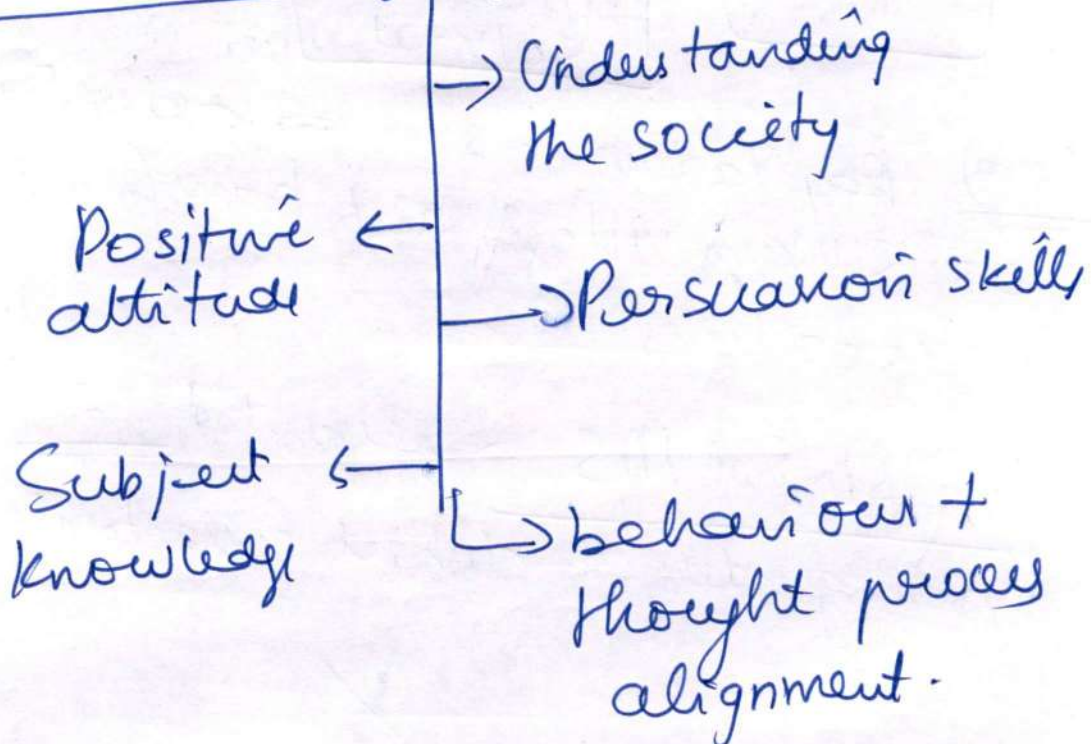 → Understanding
the society
Positive ←
attitude
→ Persuasion skills
Subject ←
knowledge
→ behaviour +
thought process
alignment.